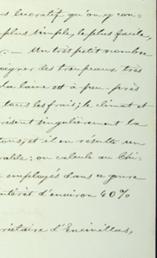 lucratif qu'on y con-
plus simple, le plus facile,
. — Un très petit nombre
soigner des troupeaux très
la laine est à peu près
tous les frais; le climat et
risent singulièrement la
et il en résulte un
; on calcule au Chi-
employés dans ce genre
intérêt d'environ 40%
riétaire d'Encinillas,